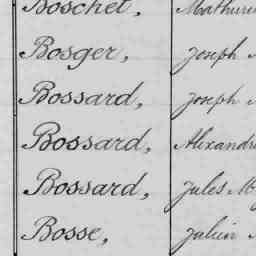 Boschet, Mathuri
Bosger, Joseph
Bossard, Joseph
Bossard, Alexandr
Bossard, Jules M
Bosse, Julien